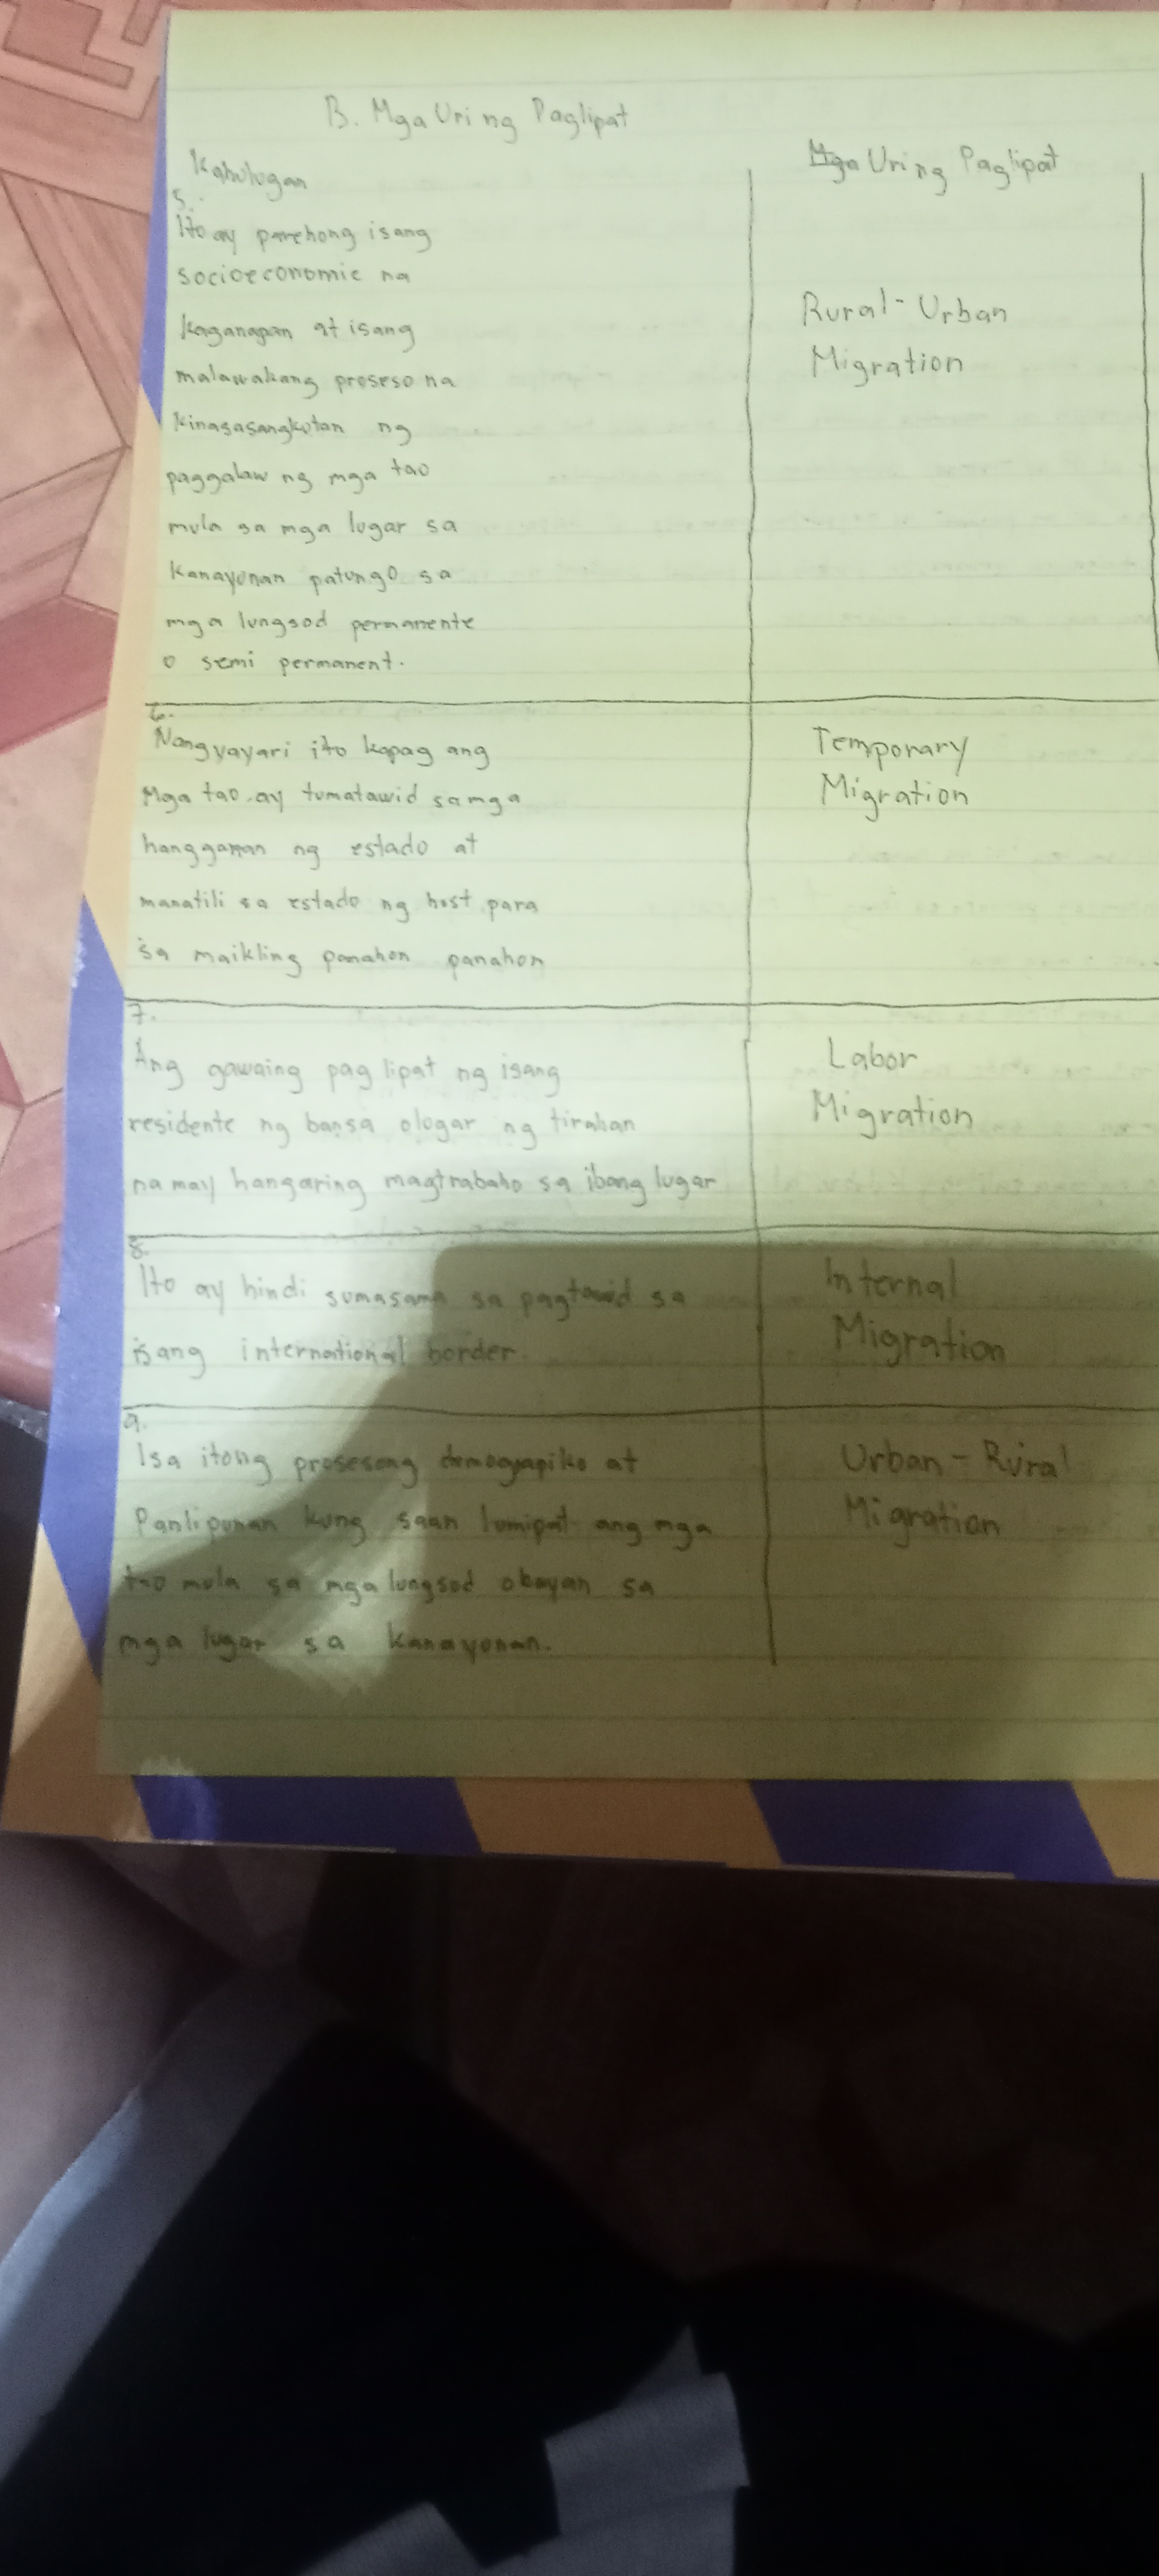 B. Mga Uri ng Paglipat
Kahulugan
Mga Uri ng Paglipat
5.
Ito ay parehong isang
socioeconomic na
kaganapan at isang
malawakang proseso na
kinasasangkotan ng
paggalaw ng mga tao
mula sa mga lugar sa
kanayunan patungo sa
mga lungsod permanente
o semi permanent.
Rural-Urban
Migration
6.
Nangyayari ito kapag ang
Mga tao ay tumatawid sa mga
hangganan ng estado at
manatili sa estado ng host para
sa maikling panahon panahon
Temporary
Migration
7.
Ang gawaing pag lipat ng isang
residente ng bansa o lugar ng tirahan
na may hangaring magtrabaho sa ibang lugar
Labor
Migration
8.
Ito ay hindi sumasama sa pagtawid sa
isang international border.
Internal
Migration
9.
Isa itong prosesong demograpiko at
Panlipunan kung saan lumipat ang mga
tao mula sa mga lungsod o bayan sa
mga lugar sa kanayunan.
Urban-Rural
Migration